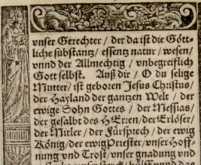 vnser Gerechter / der da ist die Gött-
liche substantz / essentz natur / wesen /
vnnd der Allmechtig / vnbegreiflich
Gott selbst. Auß dir / O du selige
Mutter / ist geboren Jesus Christus /
der Hayland der gantzen Welt / der
ewige Sohn Gottes / der Messias /
der gesalbt des HErren / der Erlöser /
der Mitler / der Fürsprech / der ewig
König / der ewig Priester / vnser Hoff-
nung vnd Trost / vnser gnadung vnd